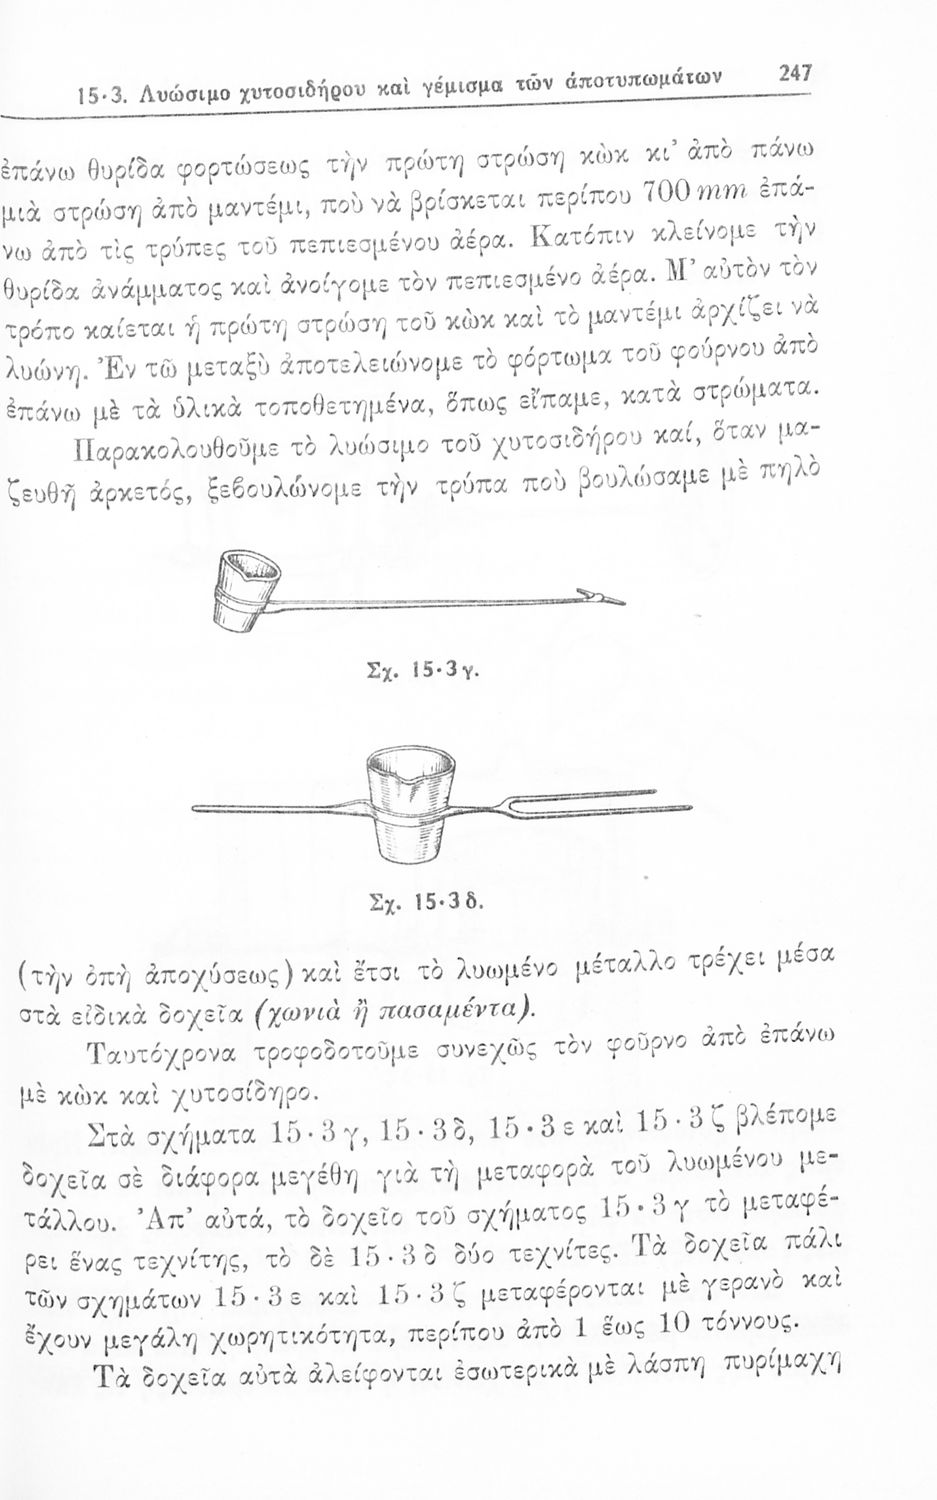 15·3. Λυώσιμο χυτοσιδήρου καὶ γέμισμα τῶν ἀποτυπωμάτων 247
ἐπάνω θυρίδα φορτώσεως τὴν πρώτη στρώση κὼκ κι’ ἀπὸ πάνω
μιὰ στρώση ἀπὸ μαντέμι, ποὺ νὰ βρίσκεται περίπου 700 mm ἐπά-
νω ἀπὸ τὶς τρύπες τοῦ πεπιεσμένου ἀέρα. Κατόπιν κλείνομε τὴν
θυρίδα ἀνάμματος καὶ ἀνοίγομε τὸν πεπιεσμένο ἀέρα. Μ’ αὐτὸν τὸν
τρόπο καίεται ἡ πρώτη στρώση τοῦ κὼκ καὶ τὸ μαντέμι ἀρχίζει νὰ
λυώνη. Ἐν τῶ μεταξὺ ἀποτελειώνομε τὸ φόρτωμα τοῦ φούρνου ἀπὸ
ἐπάνω μὲ τὰ ὑλικὰ τοποθετημένα, ὅπως εἴπαμε, κατὰ στρώματα.
Παρακολουθοῦμε τὸ λυώσιμο τοῦ χυτοσιδήρου καί, ὅταν μα-
ζευθῆ ἀρκετός, ξεβουλώνομε τὴν τρύπα ποὺ βουλώσαμε μὲ πηλὸ
Σχ. 15·3γ.
Σχ. 15·3δ.
(τὴν ὀπὴ ἀποχύσεως) καὶ ἔτσι τὸ λυωμένο μέταλλο τρέχει μέσα
στὰ εἰδικὰ δοχεῖα (χωνιὰ ἢ πασαμέντα).
Ταυτόχρονα τροφοδοτοῦμε συνεχῶς τὸν φοῦρνο ἀπὸ ἐπάνω
μὲ κὼκ καὶ χυτοσίδηρο.
Στὰ σχήματα 15·3γ, 15·3δ, 15·3ε καὶ 15·3ζ βλέπομε
δοχεῖα σὲ διάφορα μεγέθη γιὰ τὴ μεταφορὰ τοῦ λυωμένου με-
τάλλου. Ἀπ’ αὐτά, τὸ δοχεῖο τοῦ σχήματος 15·3γ τὸ μεταφέ-
ρει ἕνας τεχνίτης, τὸ δὲ 15·3δ δύο τεχνίτες. Τὰ δοχεῖα πάλι
τῶν σχημάτων 15·3ε καὶ 15·3ζ μεταφέρονται μὲ γερανὸ καὶ
ἔχουν μεγάλη χωρητικότητα, περίπου ἀπὸ 1 ἕως 10 τόννους.
Τὰ δοχεῖα αὐτὰ ἀλείφονται ἐσωτερικὰ μὲ λάσπη πυρίμαχη